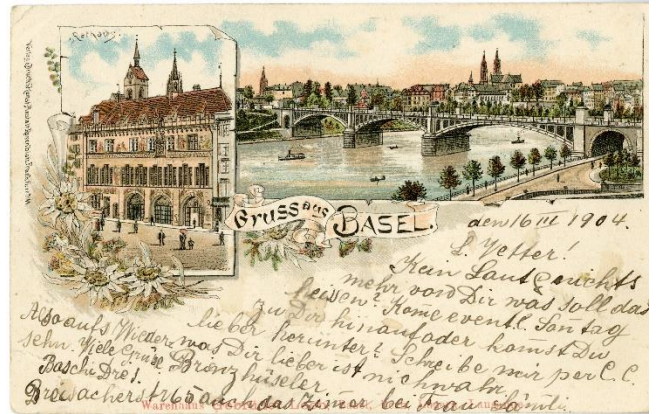 Rathaus
Gruss aus BASEL.
den 16 III 1904.
L. Vetter!
Kein Laut nichts
mehr von Dir was soll das
heisen? Kome eventl. Sontag
zu Dir hinauf oder komst Du
lieber herunter? Schreibe mir per C.C.
was Dir lieber ist nichwahr.
Also aufs Wieder
sehn. Viele Grüse
Baschi Dres.
Breisacherst 165 auch das Zimer bei Frau
Warenhaus